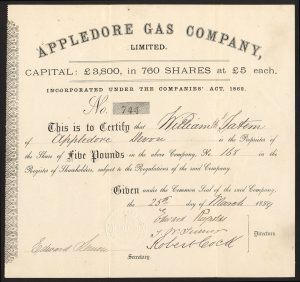 APPLEDORE GAS COMPANY,
LIMITED.
CAPITAL: £3,800, in 760 SHARES at £5 each.
INCORPORATED UNDER THE COMPANIES' ACT, 1862.
No. 744
This is to Certify that William Tatem
of Appledore Devon is the Proprietor
of the Share of FIVE POUNDS in the above Company, No. 168 in the
Register of Shareholders, subject to the Regulations of the said Company.
Given under the Common Seal of the said Company,
the 25th day of March
Edward
Directors.
Robert Cock
Edward
Secretary.